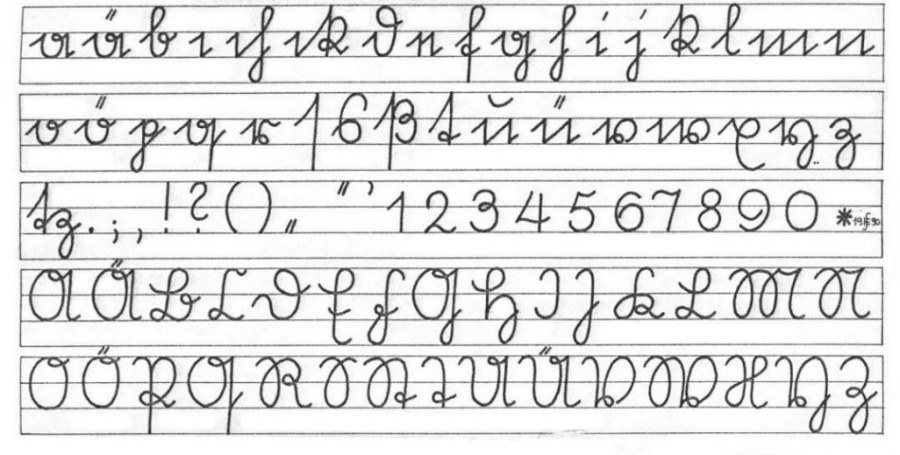 a ä b c ch ck d e f g h i j k l m n
o ö p q r ſ s ß t u ü v w x y z
tz . ; , ! ? ( ) „ “ ’ 1 2 3 4 5 6 7 8 9 0 *
A Ä B C D E F G H I J K L M N
O Ö P Q R S St T U Ü V W X Y Z